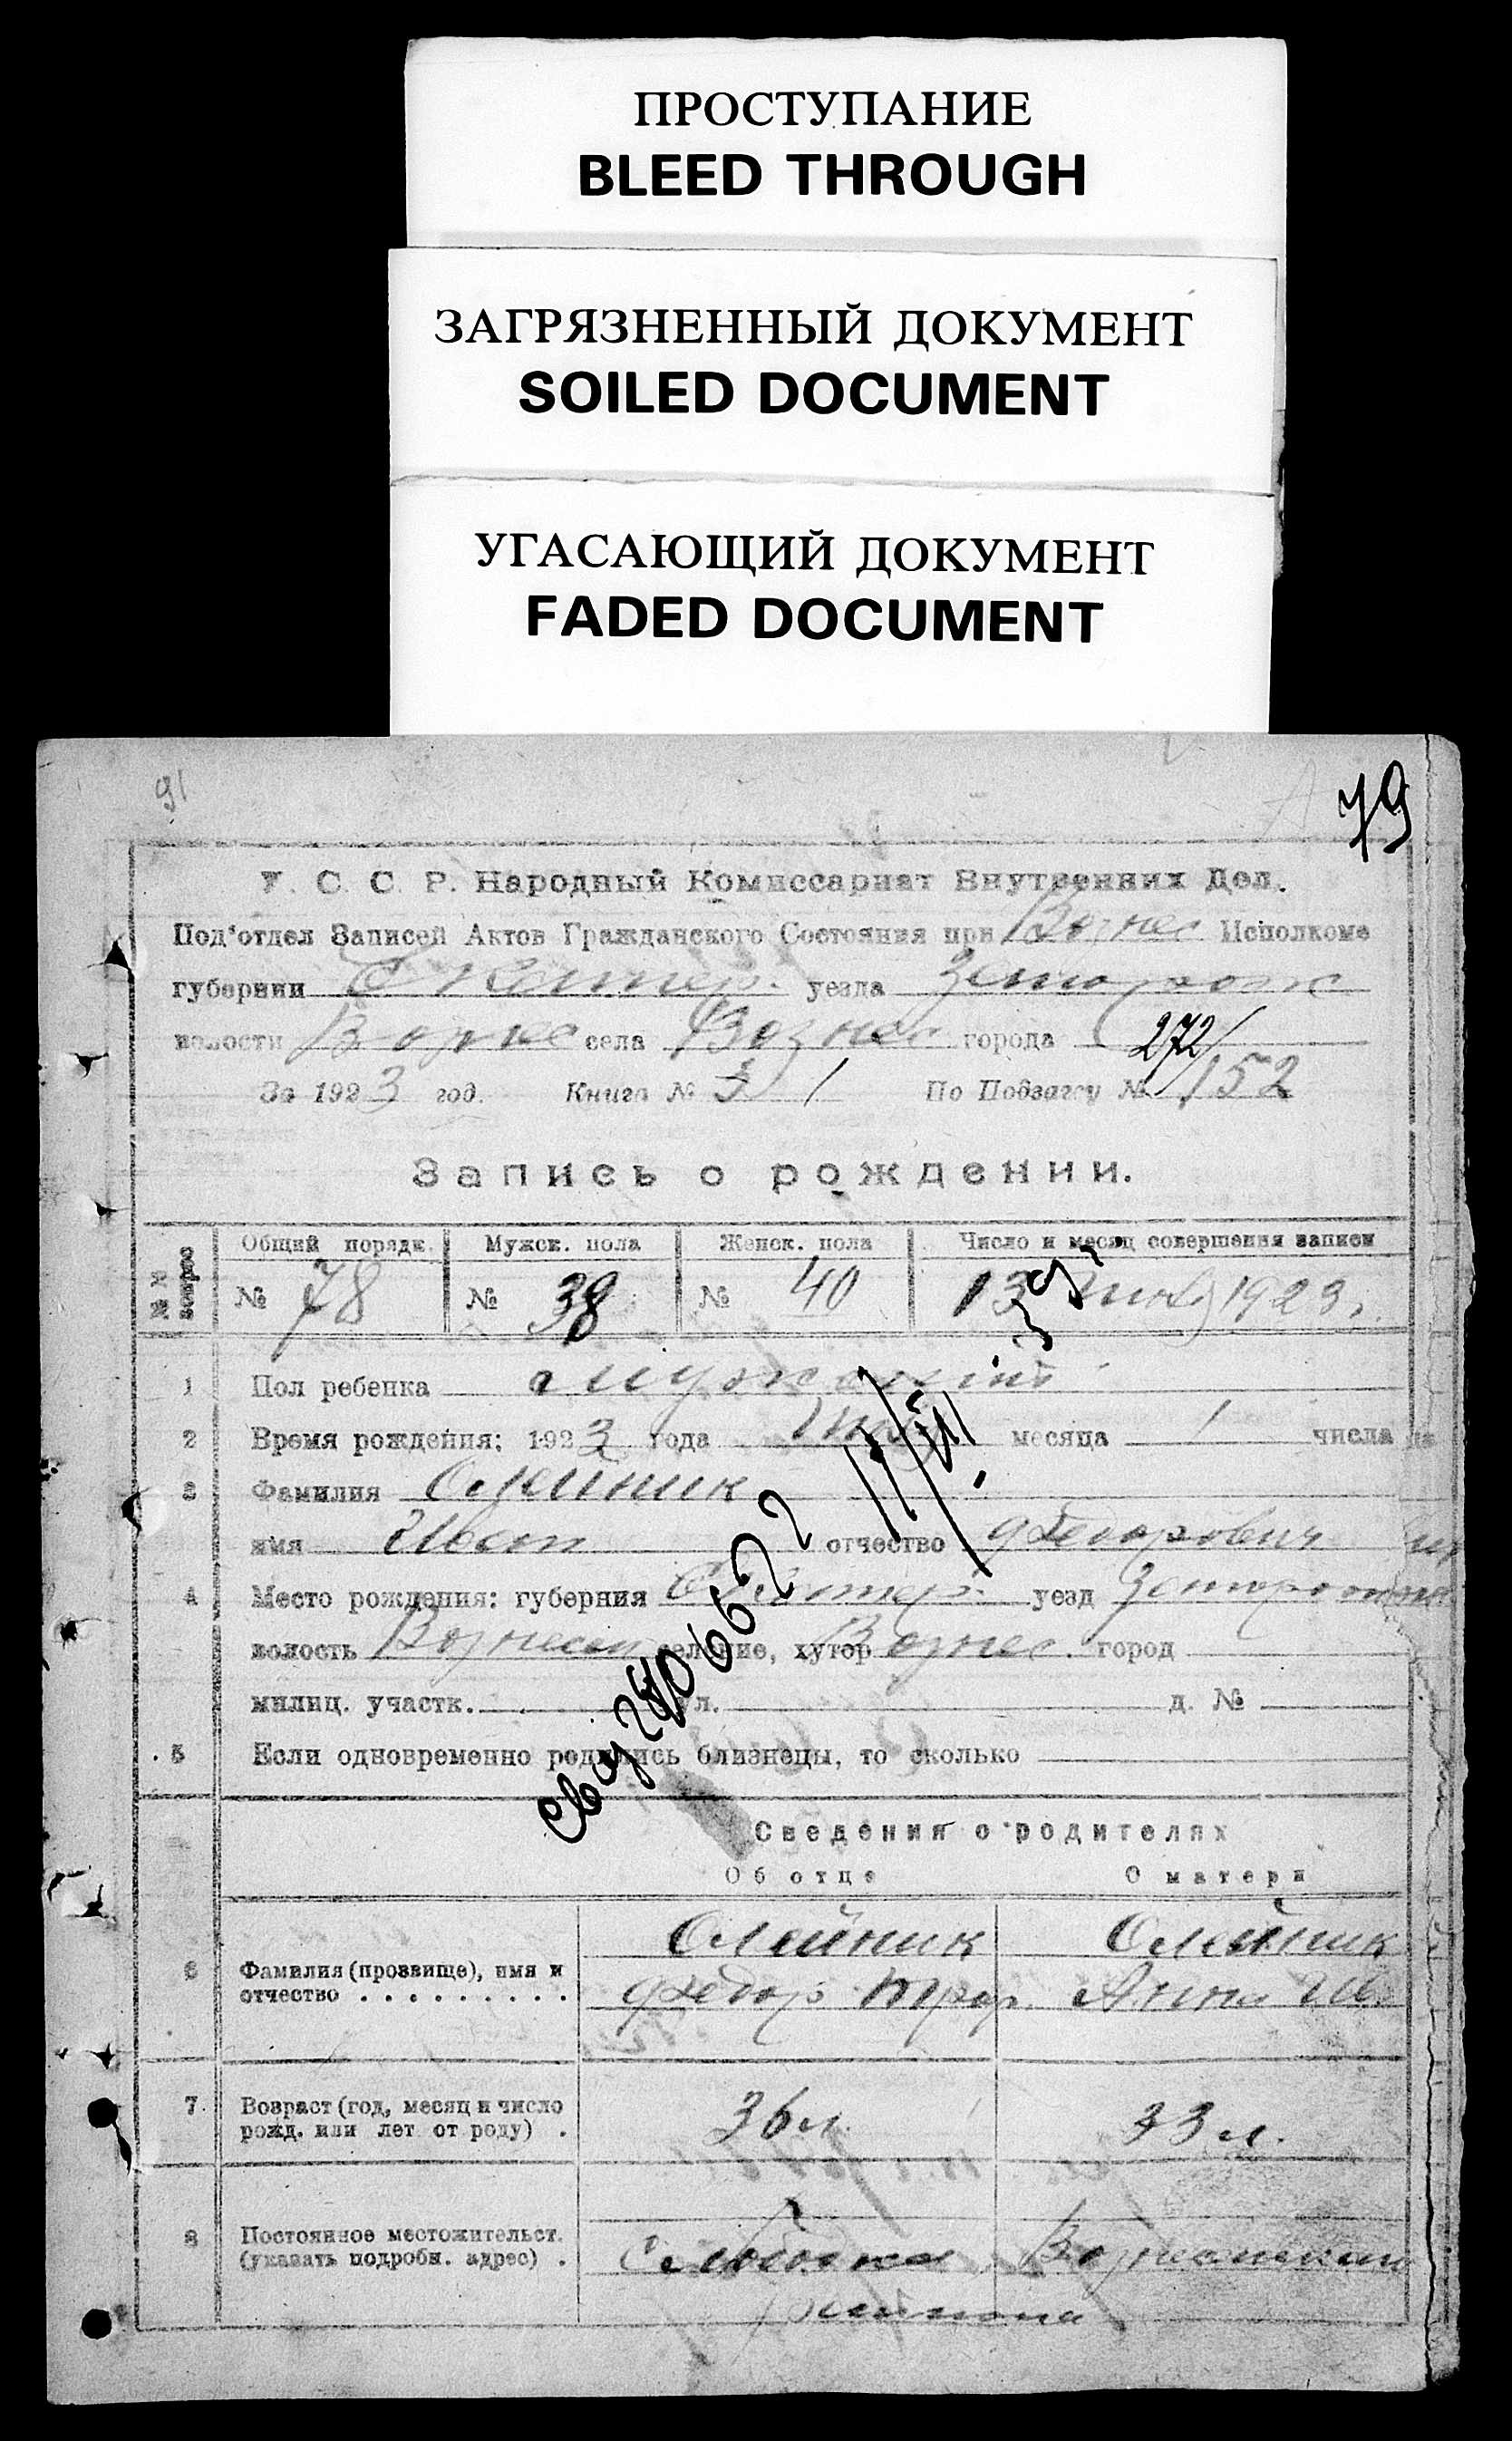 ПРОСТУПАНИЕ
BLEED THROUGH
ЗАГРЯЗНЕННЫЙ ДОКУМЕНТ
SOILED DOCUMENT
УГАСАЮЩИЙ ДОКУМЕНТ
FADED DOCUMENT
91
79
У. С. С. Р. Народный Комиссариат Внутренних Дел.
Под'отдел Записей Актов Гражданского Состояния при Вознес Исполкоме
губернии Екатер. уезда Запорож
волости Вознес села Вознес города
272/
За 1923 год. Книга № 1 По Подзагсу № 152
Запись о рождении.
№№ вопрос
Общий порядк. Мужск. пола Женск. пола Число и месяц совершения записи
№ 78 № 38 № 40 13 1923.
1 Пол ребенка мужской
2 Время рождения: 1923 года месяца 1 числа
3 Фамилия Олейник
имя Иван отчество Федорович
4 Место рождения: губерния Екатер. уезд
волость Вознесен селение, хутор Вознес. город
милиц. участк. ул. д. №
5 Если одновременно родились близнецы, то сколько
Сведения о родителях
Об отце О матери
6 Фамилия (прозвище), имя и отчество Олейник Олейник
Федор Анна Ив.
7 Возраст (год, месяц и число рожд. или лет от роду) 36 л. 33 л.
8 Постоянное местожительст. (указать подробн. адрес)